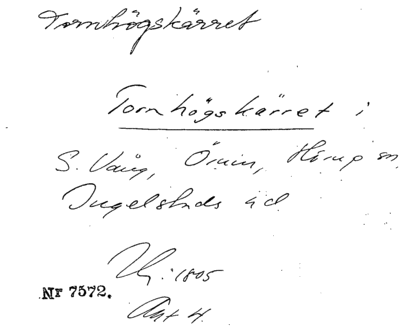 Tornhögskärret
Tornhögskärret i
S. Vång, Hörup sn,
Ingelstads hd
: 1805
Nr 7572.
Akt 4.